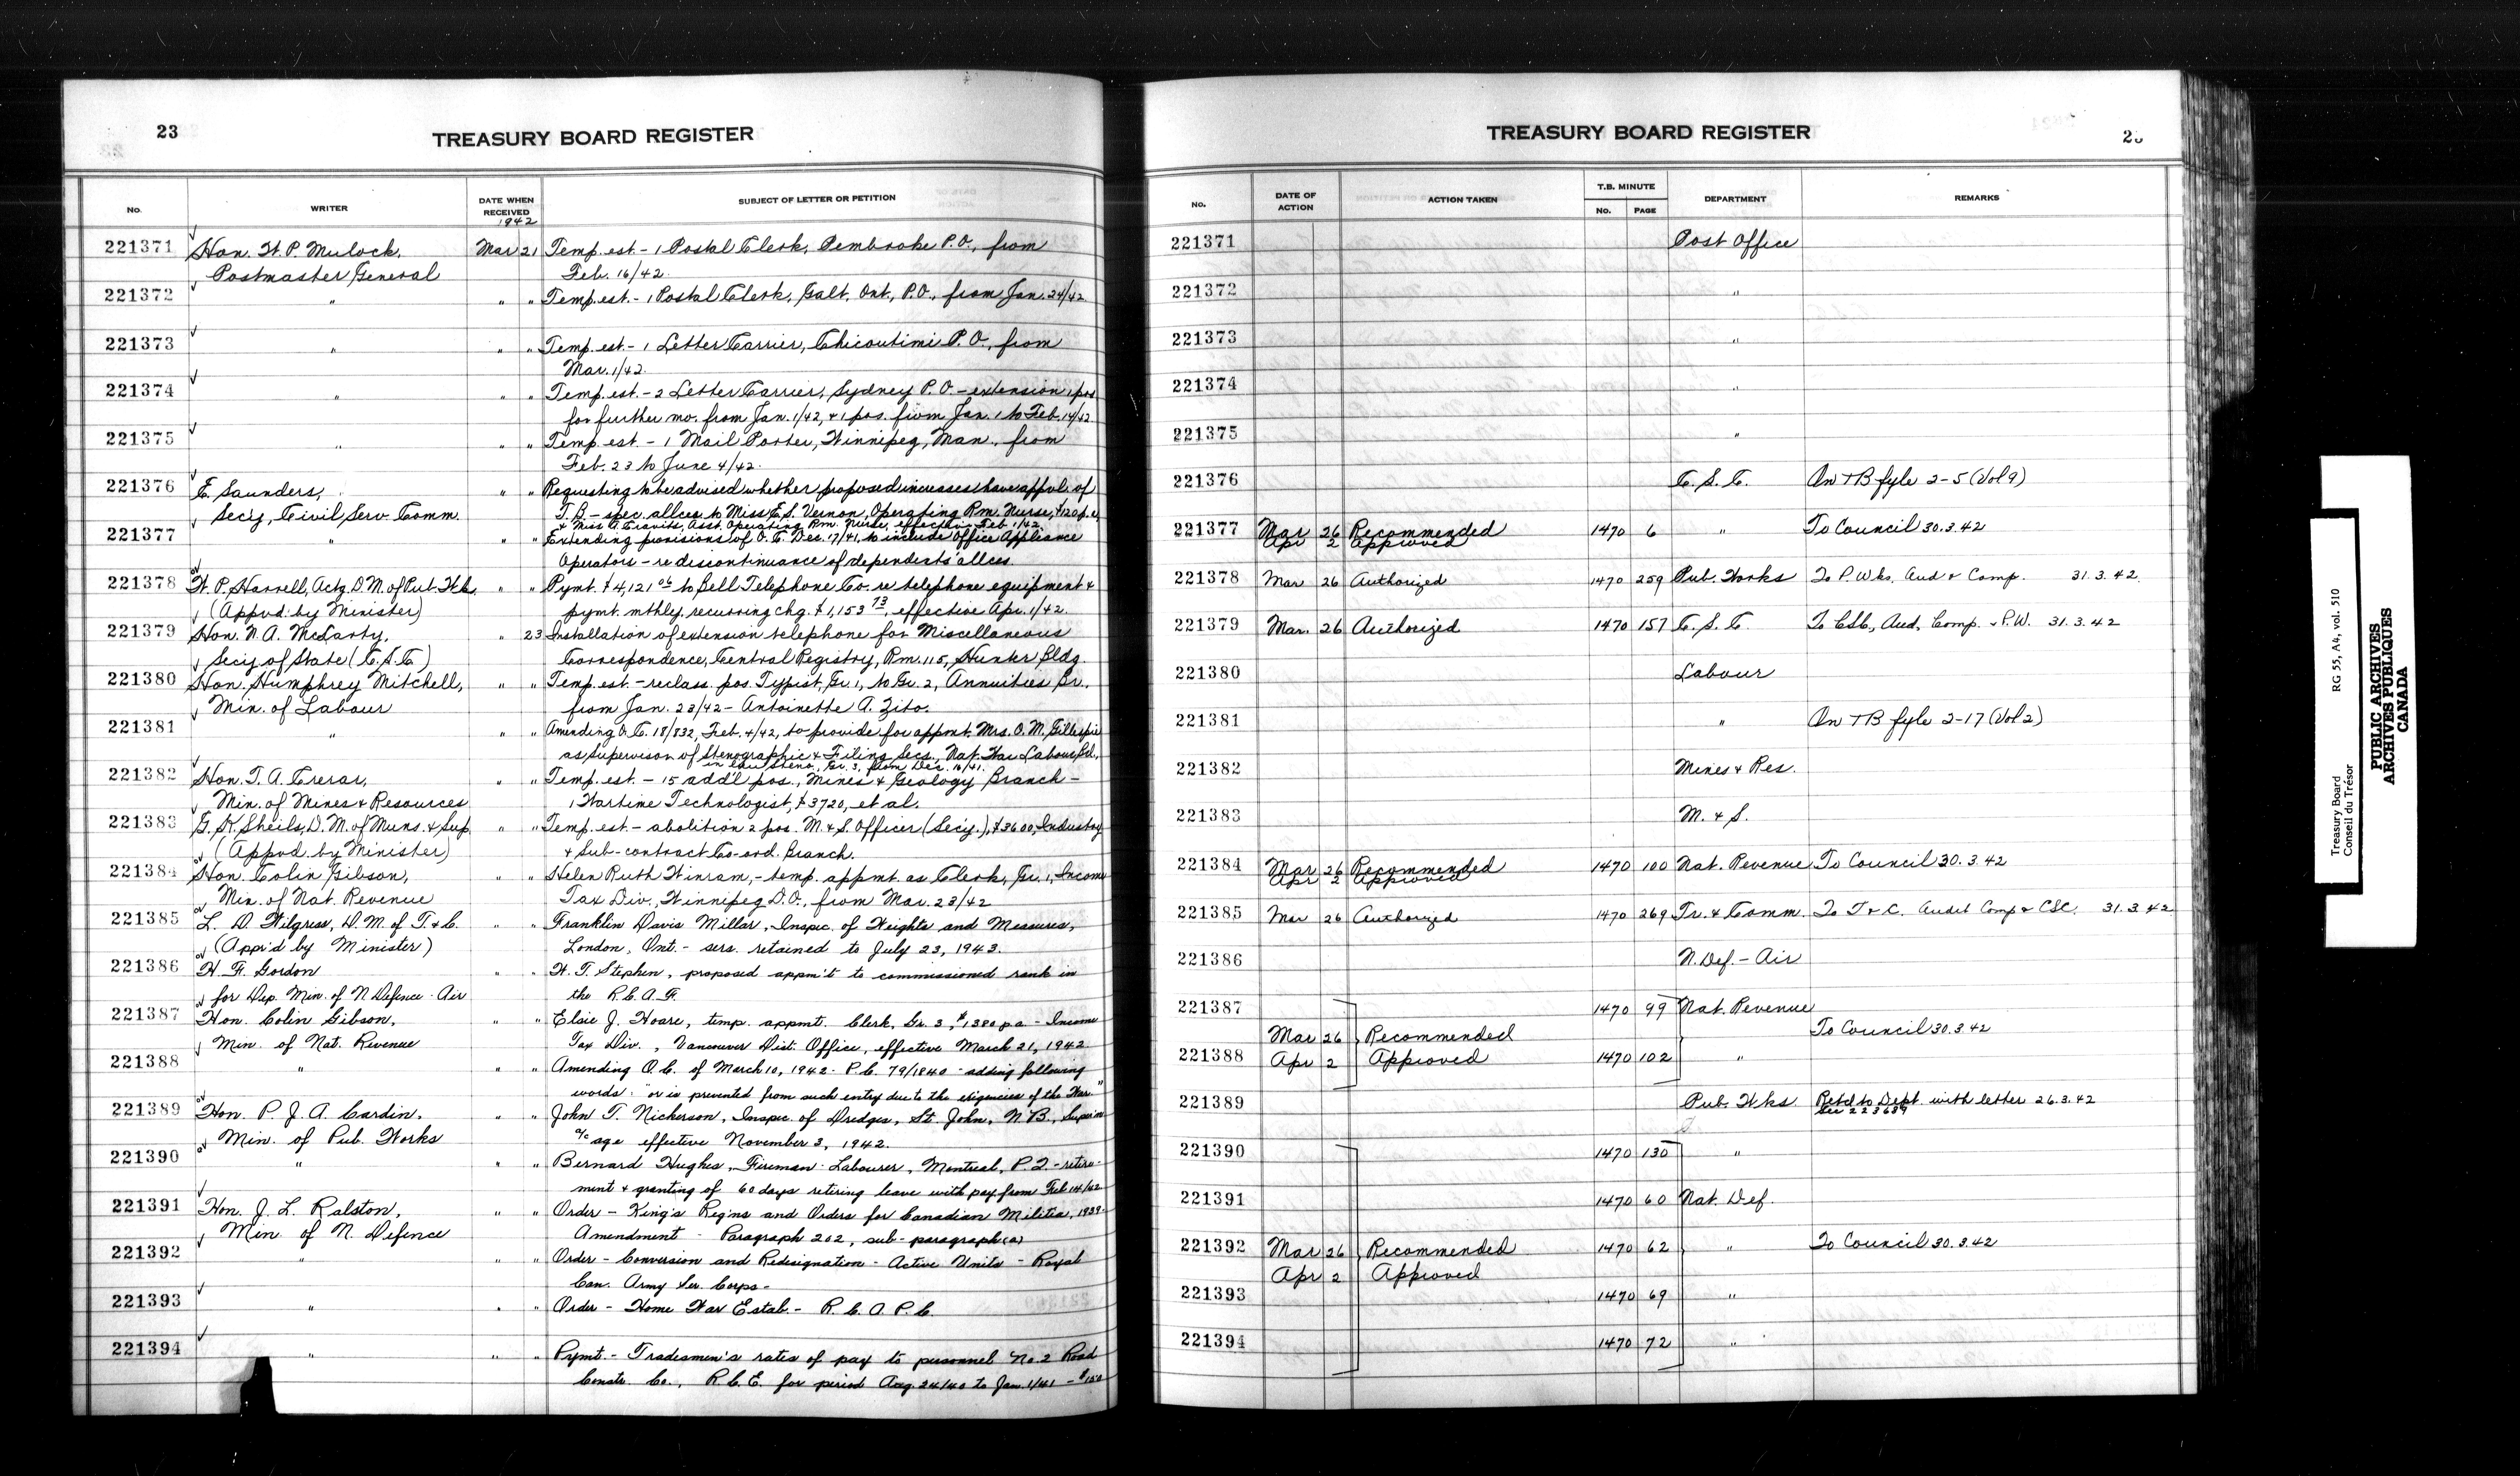 23
TREASURY BOARD REGISTER
No.
WRITER
DATE WHEN
RECEIVED
SUBJECT OF LETTER OR PETITION
1942
221371 Hon. W. P. Mulock, Mar 21 Temp. est. - 1 Postal Clerk, Pembroke P.O., from
Postmaster General Feb. 16/42.
221372 " " " Temp. est. - 1 Postal Clerk, Galt, Ont., P.O., from Jan. 24/42
221373 " " " Temp. est. - 1 Letter Carrier, Chicoutimi P.O., from
Mar. 1/42.
221374 " " " Temp. est. - 2 Letter Carrier, Sydney P.O. - extension 1 pos
for further mo. from Jan. 1/42, & 1 pos. from Jan. 1 to Feb. 14/42
221375 " " " Temp. est. - 1 Mail Porter, Winnipeg, Man., from
Feb. 23 to June 4/42.
221376 E. Saunders, " " Requesting to be advised whether proposed increases have appvl. of
Secy, Civil Serv. Comm. T.B. - spec. allces to Miss E.S. Vernon, Operating Rm. Nurse, $120 p.a.
& Miss A. Travits, Asst. Operating Rm. Nurse, effective Feb. 1/42.
221377 " " " Extending provisions of O.C. Dec. 17/41, to include Office Appliance
Operators - re discontinuance of dependents' allces.
221378 W. P. Harrell, Actg. D.M. of Pub. Wks. " " Pymt. $4,121.06 to Bell Telephone Co. re telephone equipment &
(Appvd. by Minister) pymt. mthly. recurring chg. $1,153.73, effective Apr. 1/42.
221379 Hon. N. A. McLarty, " 23 Installation of extension telephone for Miscellaneous
Secy of State (C.S.C) Correspondence, Central Registry, Rm. 115, Hunter Bldg.
221380 Hon. Humphrey Mitchell, " " Temp. est. - reclass. pos. Typist, Gr. 1, to Gr. 2, Annuities Br.,
Min. of Labour from Jan. 23/42 - Antoinette A. Zito.
221381 " " " Amending O.C. 18/832, Feb. 4/42, to provide for appmt. Mrs. O. M. Gillespie
as Supervisor of Stenographic & Filing Secs., Nat. War Labour Bd.,
Steno., Gr. 3, from Dec. 16/41.
221382 Hon. T. A. Crerar, " " Temp. est. - 15 add'l pos., Mines & Geology Branch -
Min. of Mines & Resources 1 Wartime Technologist, $3720, et al.
221383 G. K. Sheils, D. M. of Muns. & Sup. " " Temp. est. - abolition 2 pos. M. & S. Officer (Secy.), $3600, Industry
(Appvd. by Minister) & Sub-contract Co-ord. Branch.
221384 Hon. Colin Gibson, " " Helen Ruth Winram, - temp. appmt. as Clerk, Gr. 1, Income
Min. of Nat. Revenue Tax Div., Winnipeg D.O., from Mar. 23/42
221385 L. D. Wilgress, D. M. of T. & C. " " Franklin Davis Millar, Inspec. of Weights and Measures,
(Appr'd by Minister) London, Ont. - sers. retained to July 23, 1943.
221386 H. F. Gordon " " W. T. Stephen, proposed appm't to commissioned rank in
for Dep. Min. of N. Defence - Air the R.C.A.F.
221387 Hon. Colin Gibson, " " Elsie J. Hoare, temp. appmt. Clerk, Gr. 3, $1380 p.a - Income
Min. of Nat. Revenue Tax Div., Vancouver Dist. Office, effective March 21, 1942
221388 " " " Amending O.C. of March 10, 1942 - P.C. 79/1840 - adding following
words: "or is prevented from such entry due to the exigencies of the War."
221389 Hon. P. J. A. Cardin, " " John T. Nickerson, Inspec. of Dredges, St. John, N.B., Superan
Min. of Pub. Works a/c age effective November 3, 1942.
221390 " " " Bernard Hughes, Fireman-Labourer, Montreal, P.Q. - retire-
ment & granting of 60 days retiring leave with pay from Feb 14/42
221391 Hon. J. L. Ralston, " " Order - King's Reg'ns and Orders for Canadian Militia, 1939 -
Min. of N. Defence Amendment - Paragraph 202, sub-paragraph (a)
221392 " " " Order - Conversion and Redesignation - Active Units - Royal
Can. Army Ser. Corps -
221393 " " " Order - Home War Estab. - R.C.A.P.C.
221394 " " " Pymt. - Tradesmen's rates of pay to personnel No. 2 Road
Constr. Co., R.C.E. for period Aug. 24/40 to Jan. 1/41 - $150
TREASURY BOARD REGISTER
No.
DATE OF
ACTION
ACTION TAKEN
T.B. MINUTE
No. PAGE
DEPARTMENT
REMARKS
221371 Post Office
221372 "
221373 "
221374 "
221375 "
221376 C.S.C. On TB fyle 2-5 (Vol 9)
221377 Mar 26 Recommended 1470 6 " To Council 30.3.42
Apr 2 Approved
221378 Mar 26 Authorized 1470 259 Pub. Works To P. Wks. Aud & Comp. 31.3.42
221379 Mar. 26 Authorized 1470 157 C.S.C. To CSC, Aud, Comp. & P.W. 31.3.42
221380 Labour
221381 " On TB fyle 2-17 (Vol 2)
221382 Mines & Res.
221383 M. & S.
221384 Mar 26 Recommended 1470 100 Nat. Revenue To Council 30.3.42
Apr 2 Approved
221385 Mar 26 Authorized 1470 269 Tr. & Comm. To T & C. Audit Comp & CSC. 31.3.42
221386 N. Def. - Air
221387 1470 99 Nat. Revenue
Mar 26 Recommended To Council 30.3.42
221388 Apr 2 Approved 1470 102 "
221389 Pub. Wks Retd to Dept. with letter 26.3.42
See 223689
221390 1470 130 "
221391 1470 60 Nat. Def.
221392 Mar 26 Recommended 1470 62 " To Council 30.3.42
Apr 2 Approved
221393 1470 69 "
221394 1470 72 "
Treasury Board
Conseil du Trésor
RG 55, A4, vol. 510
PUBLIC ARCHIVES
ARCHIVES PUBLIQUES
CANADA